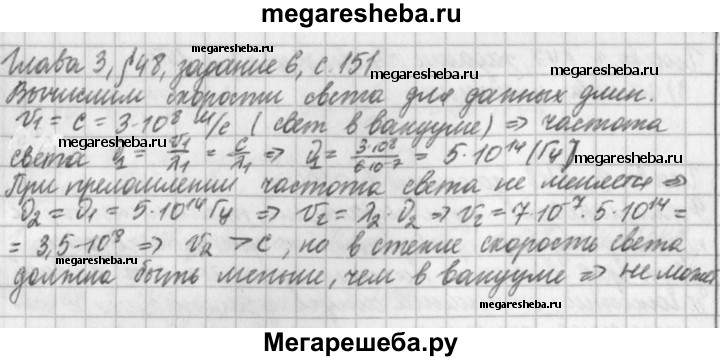 megaresheba.ru
Глава 3, §48, задание 6, с. 151
megaresheba.ru
megaresheba.ru
Вычислим скорости света для данных длин.
v₁ = c = 3·10⁸ м/с (свет в вакууме) => частота
megaresheba.ru
света ν₁ = v₁/λ₁ = c/λ₁ => ν₁ = 3·10⁸/6·10⁻⁷ = 5·10¹⁴ (Гц)
При преломлении частота света не меняется =>
ν₂ = ν₁ = 5·10¹⁴ Гц => v₂ = λ₂·ν₂ => v₂ = 7·10⁻⁷·5·10¹⁴ =
= 3,5·10⁸ => v₂ > c, но в стекле скорость света
megaresheba.ru
должна быть меньше, чем в вакууме => не может
megaresheba.ru
Мегарешеба.ру